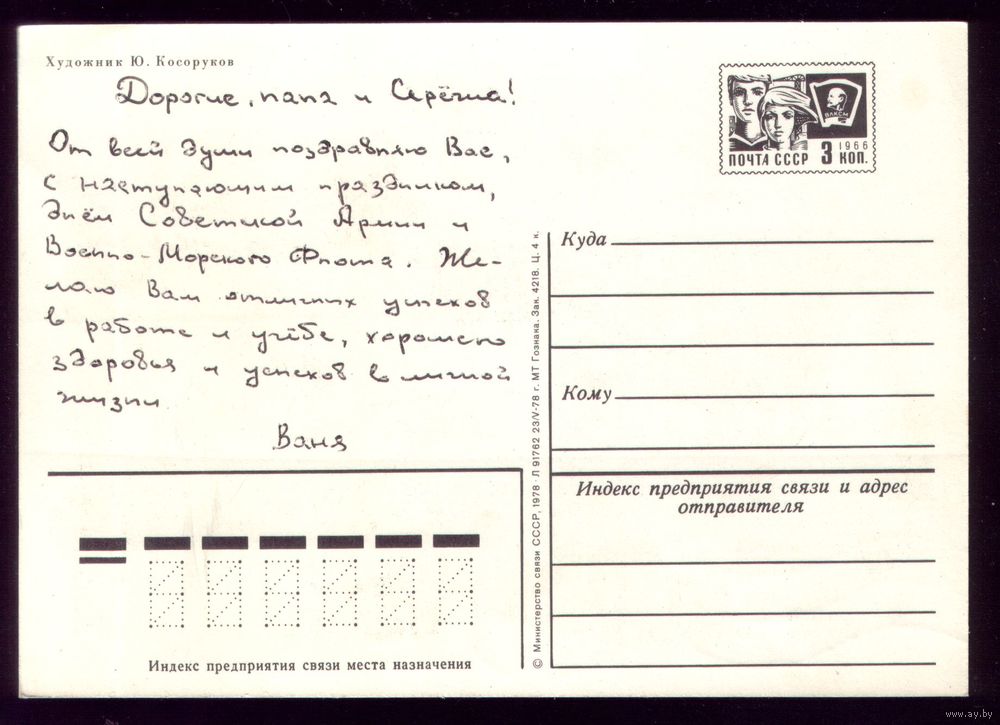 Художник Ю. Косоруков
Дорогие, папа и Серёжа!
От всей души поздравляю Вас,
с наступающим праздником,
днём Советской Армии и
Военно-Морского Флота. Же-
лаю Вам отличных успехов
в работе и учёбе, хорошего
здоровья и успехов в личной
жизни.
Ваня
ВЛКСМ
1966
ПОЧТА СССР 3 КОП.
Куда
Кому
Индекс предприятия связи и адрес
отправителя
© Министерство связи СССР, 1978 · Л 91762 23/V-78 г. МТ Гознака. Зак. 4218. Ц. 4 к.
Индекс предприятия связи места назначения
www.ay.by